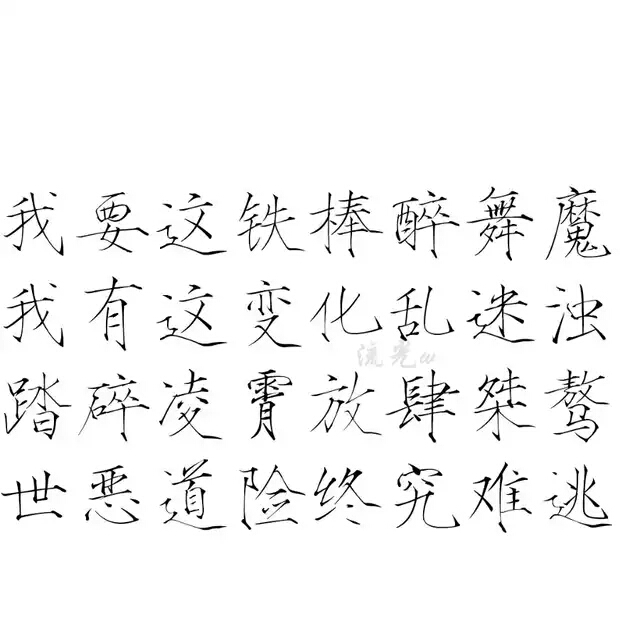 我要这铁棒醉舞魔
我有这变化乱迷浊
踏碎凌霄放肆桀骜
世恶道险终究难逃
流光ω